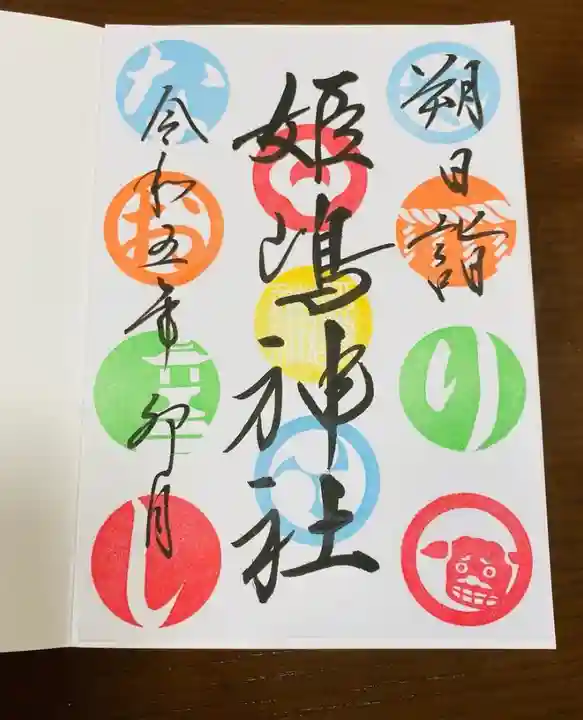 朔日詣
姫嶋神社
令和五年卯月
や
り
な
お
し